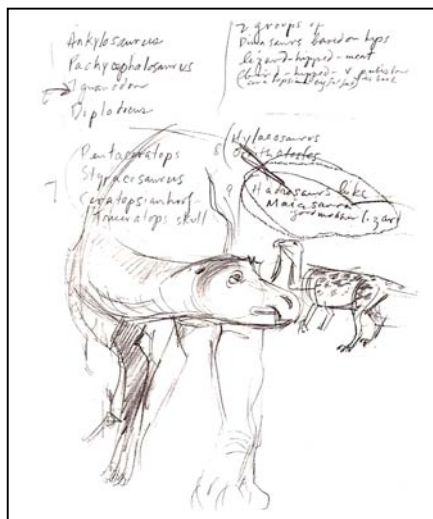 Ankylosaurus
Pachycephalosaurus
Iguanodon
Diplodocus
2 groups of
Dinosaurs based on hips
lizard-hipped-meat
hipped-
Pentaceratops
Styracosaurus
7 Ceratops:anhers-
triceratops skull
8 Hylaeosaurus
Ornitholestes
9 Hadrosaurs like
Maiasaura
good mother lizard